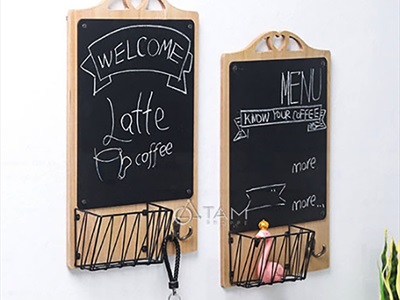 WELCOME
Latte
coffee
MENU
KNOW YOUR COFFEE
more
more...
ATAM